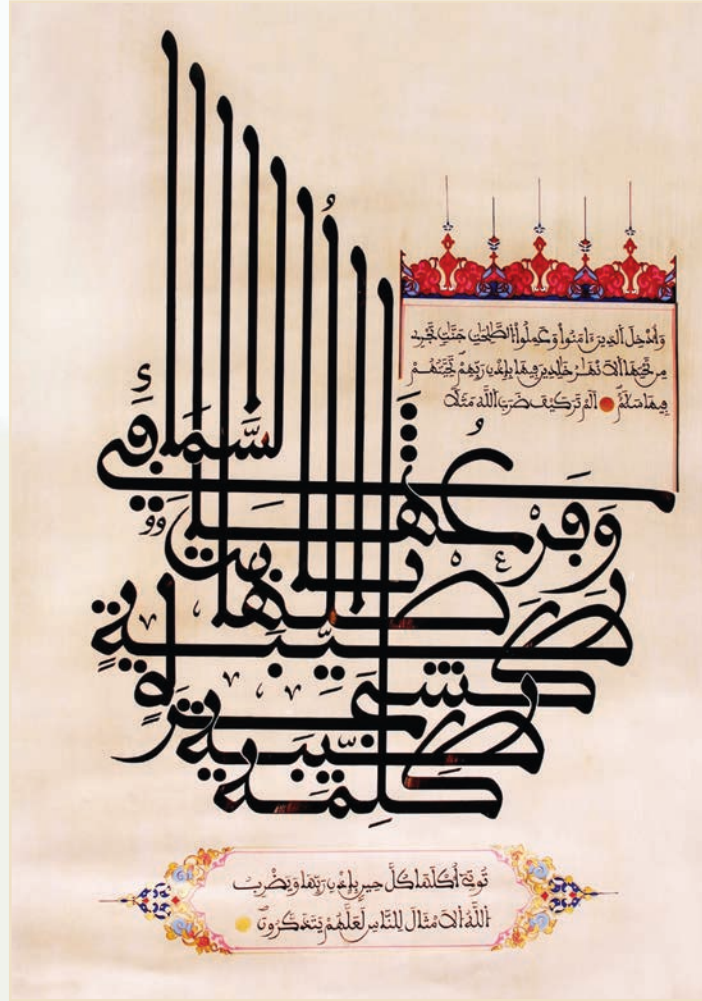 وَأُدْخِلَ الَّذِينَ ءَامَنُوا وَعَمِلُوا الصَّٰلِحَٰتِ جَنَّٰتٍ تَجْرِي
مِن تَحْتِهَا الْأَنْهَٰرُ خَٰلِدِينَ فِيهَا بِإِذْنِ رَبِّهِمْ تَحِيَّتُهُمْ
فِيهَا سَلَٰمٌ أَلَمْ تَرَ كَيْفَ ضَرَبَ اللَّهُ مَثَلًا
كَلِمَةً
طَيِّبَةً
كَشَجَرَةٍ
طَيِّبَةٍ
أَصْلُهَا ثَابِتٌ
وَفَرْعُهَا
فِي السَّمَاءِ
تُؤْتِي أُكُلَهَا كُلَّ حِينٍ بِإِذْنِ رَبِّهَا وَيَضْرِبُ
اللَّهُ الْأَمْثَالَ لِلنَّاسِ لَعَلَّهُمْ يَتَذَكَّرُونَ